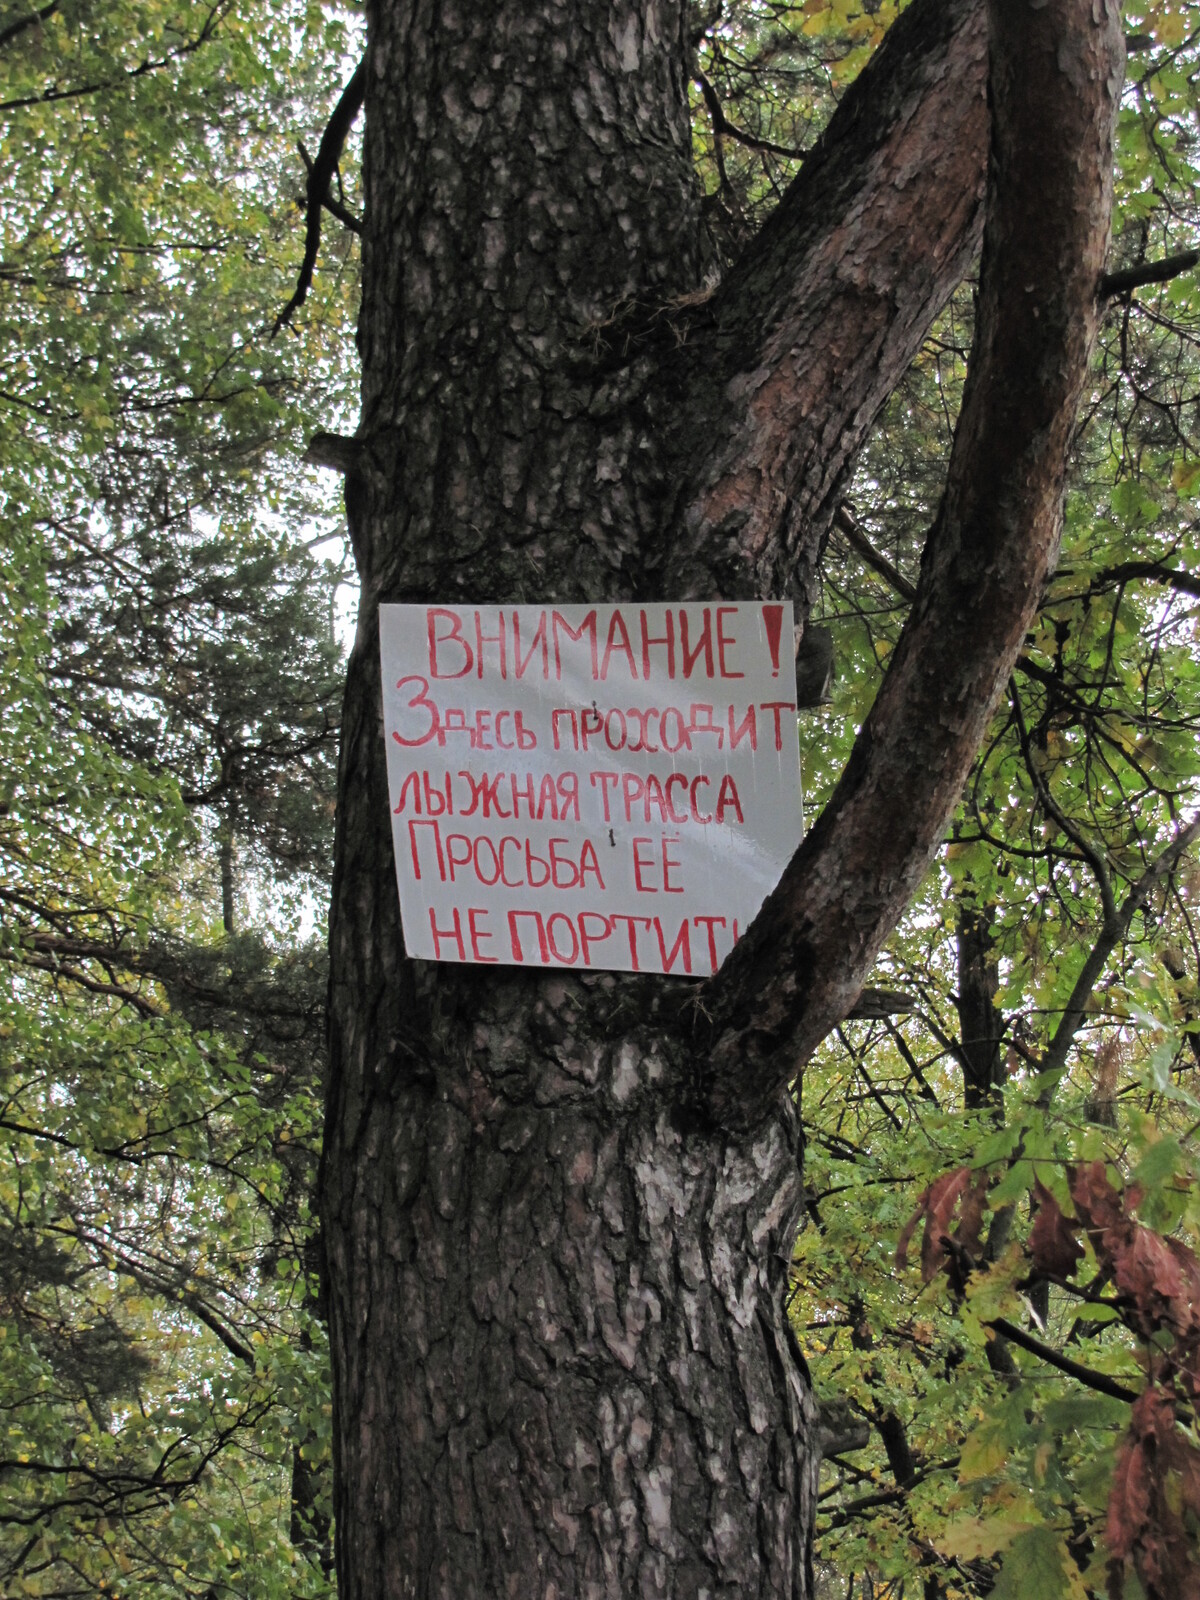 ВНИМАНИЕ!
Здесь проходит
лыжная трасса
Просьба её
не портить